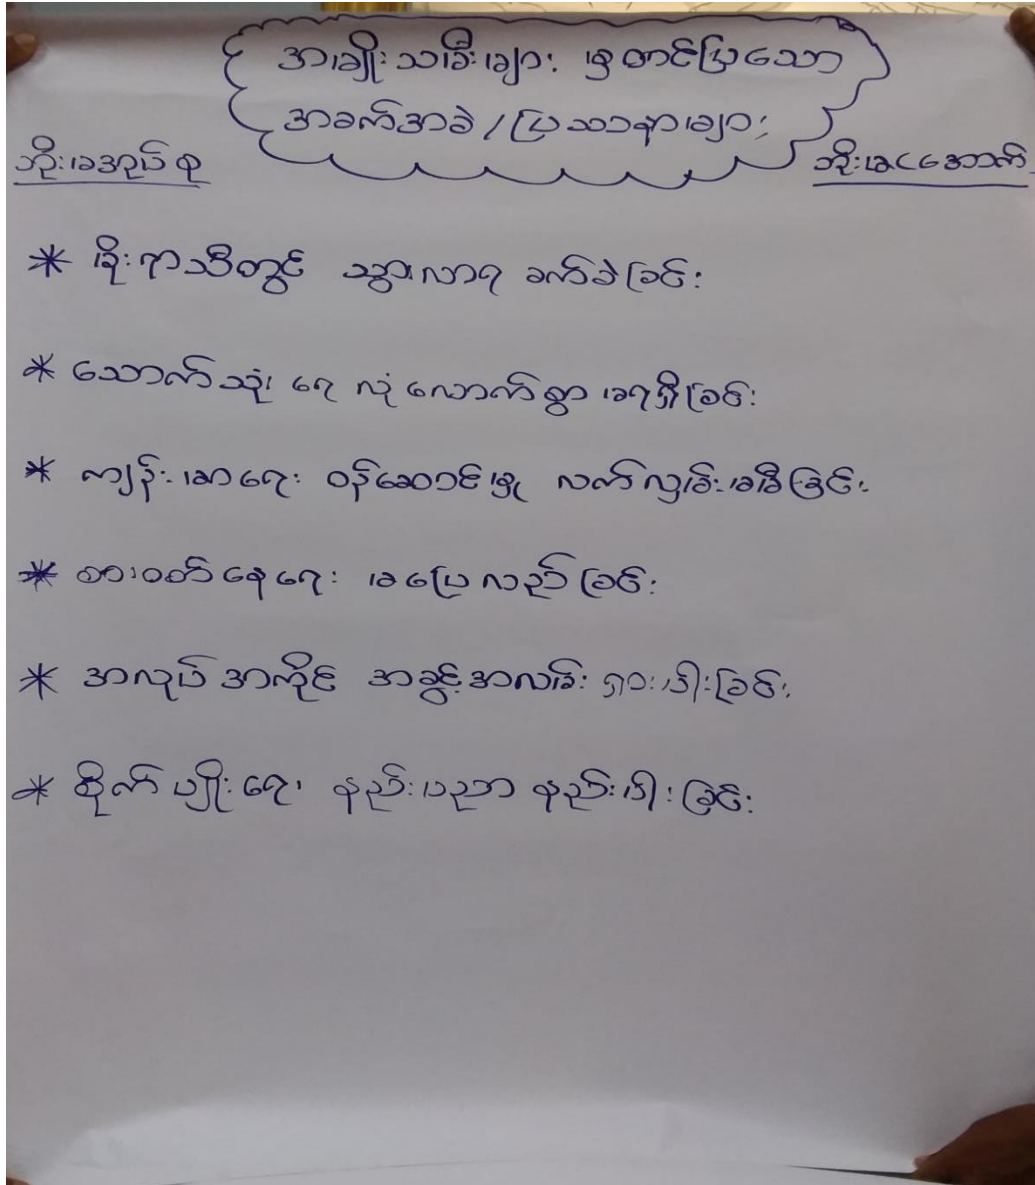 အမျိုးသမီးများ မှ တင်ပြသော
အခက်အခဲ / ပြဿနာများ
ဘိုးမအုပ်စု
ဘိုးမငအောက်
* မိုးရာသီတွင် သွားလာရ ခက်ခဲခြင်း
* သောက်သုံး ရေ လုံလောက်စွာ မရရှိခြင်း
* ကျန်းမာရေး ဝန်ဆောင်မှု လက်လှမ်းမမီခြင်း
* စားဝတ်နေရေး မပြေလည်ခြင်း
* အလုပ်အကိုင် အခွင့်အလမ်း ရှားပါးခြင်း
* စိုက်ပျိုးရေး နည်းပညာ နည်းပါးခြင်း